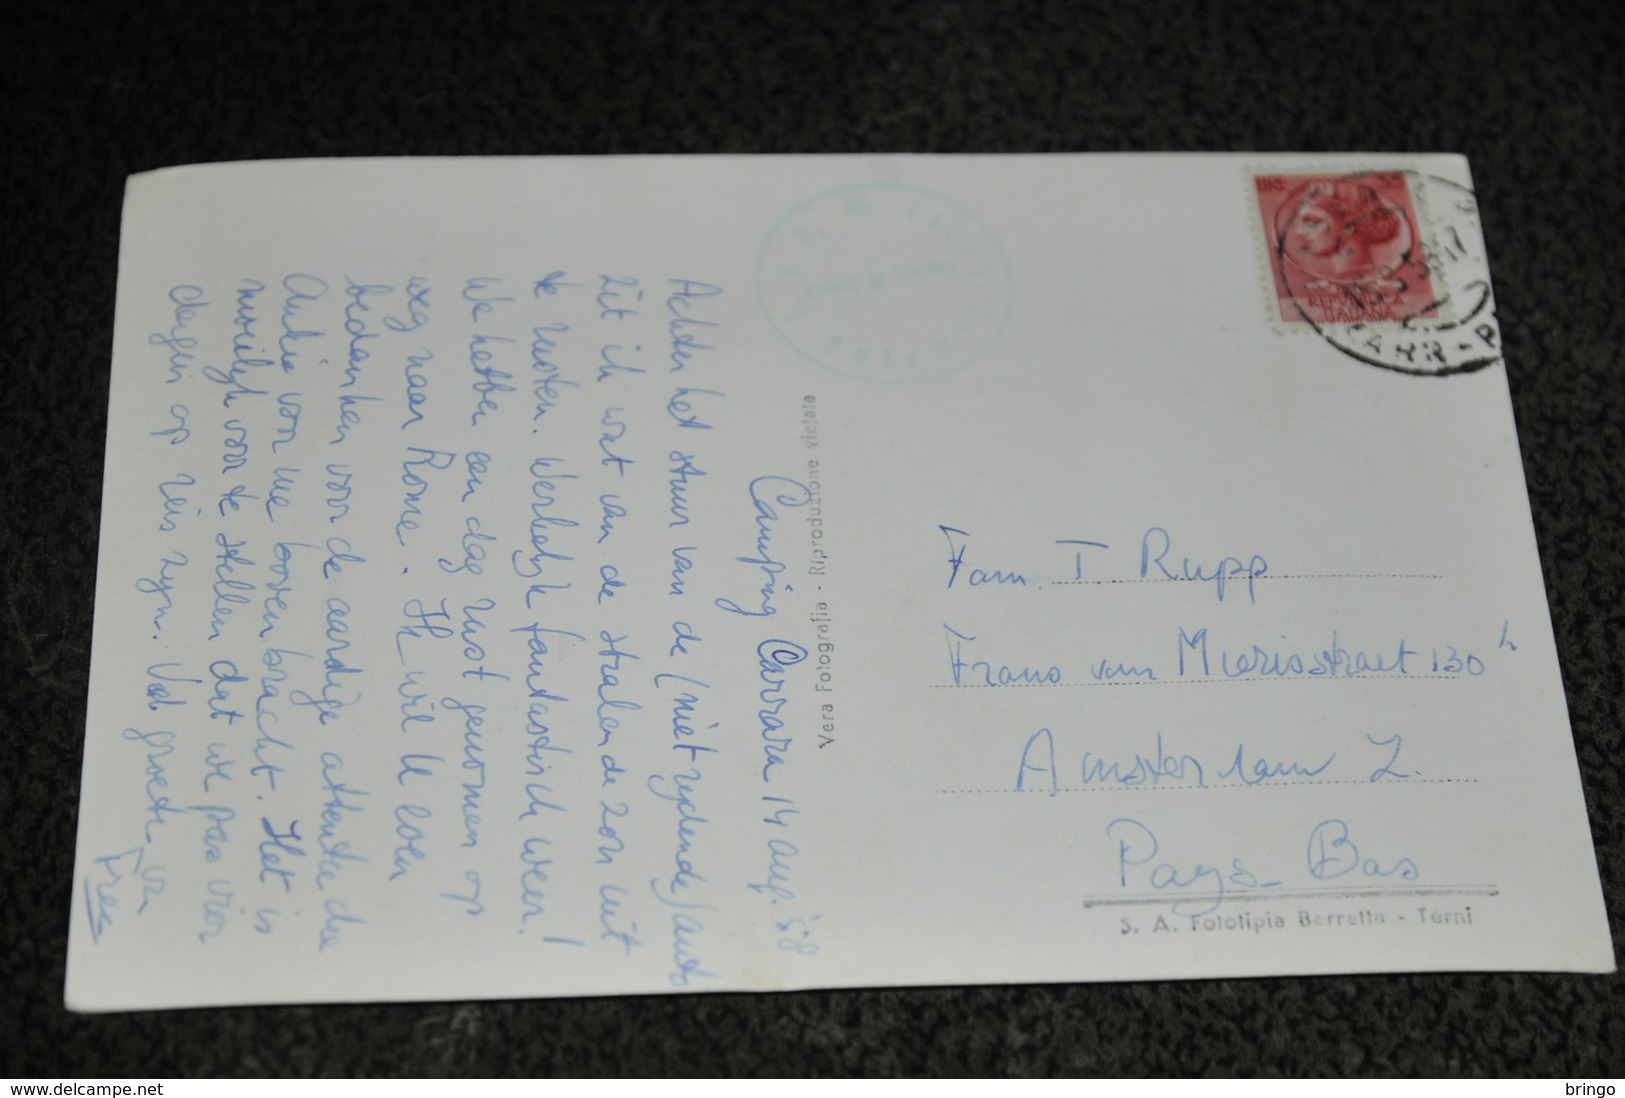 Camping Carrara 14 aug. '58
Achter het stuur van de (niet rydende) auto
zit ik wat van de stralende zon uit
te rusten. Werkelyk fantastisch weer!
We hebben een dag rust genomen op
weg naar Rome. Ik wil U even
bedanken voor de aardige attentie die
Ankie voor me boven bracht. Het is
moeilyk voor te stellen dat we pas vier
dagen op reis zyn. Vele groeten van
Free
Vera Fotografia - Riproduzione vietata
LIRE
REPVBBLICA
ITALIANA
Fam. T. Rupp
Frans van Mierisstraat 130 h
Amsterdam Z.
Pays-Bas
S. A. Fototipia Berretta - Terni
www.delcampe.net
bringo